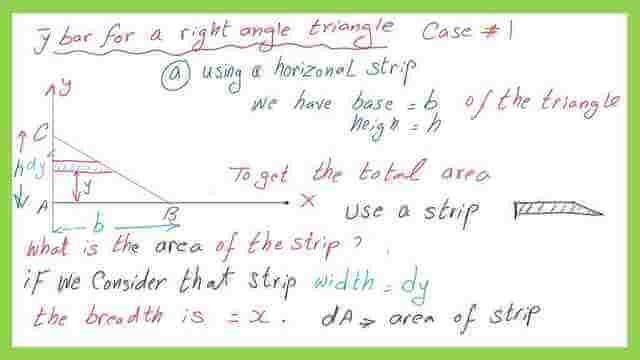 ȳ bar for a right angle triangle Case #1
ⓐ using a horizonal strip
we have base = b of the triangle
heign = h
y
C
h dy
y
A
B
x
b
To get the total area
use a strip
What is the area of the strip?
if we Consider that strip width = dy
the breadth is = x. dA => area of strip